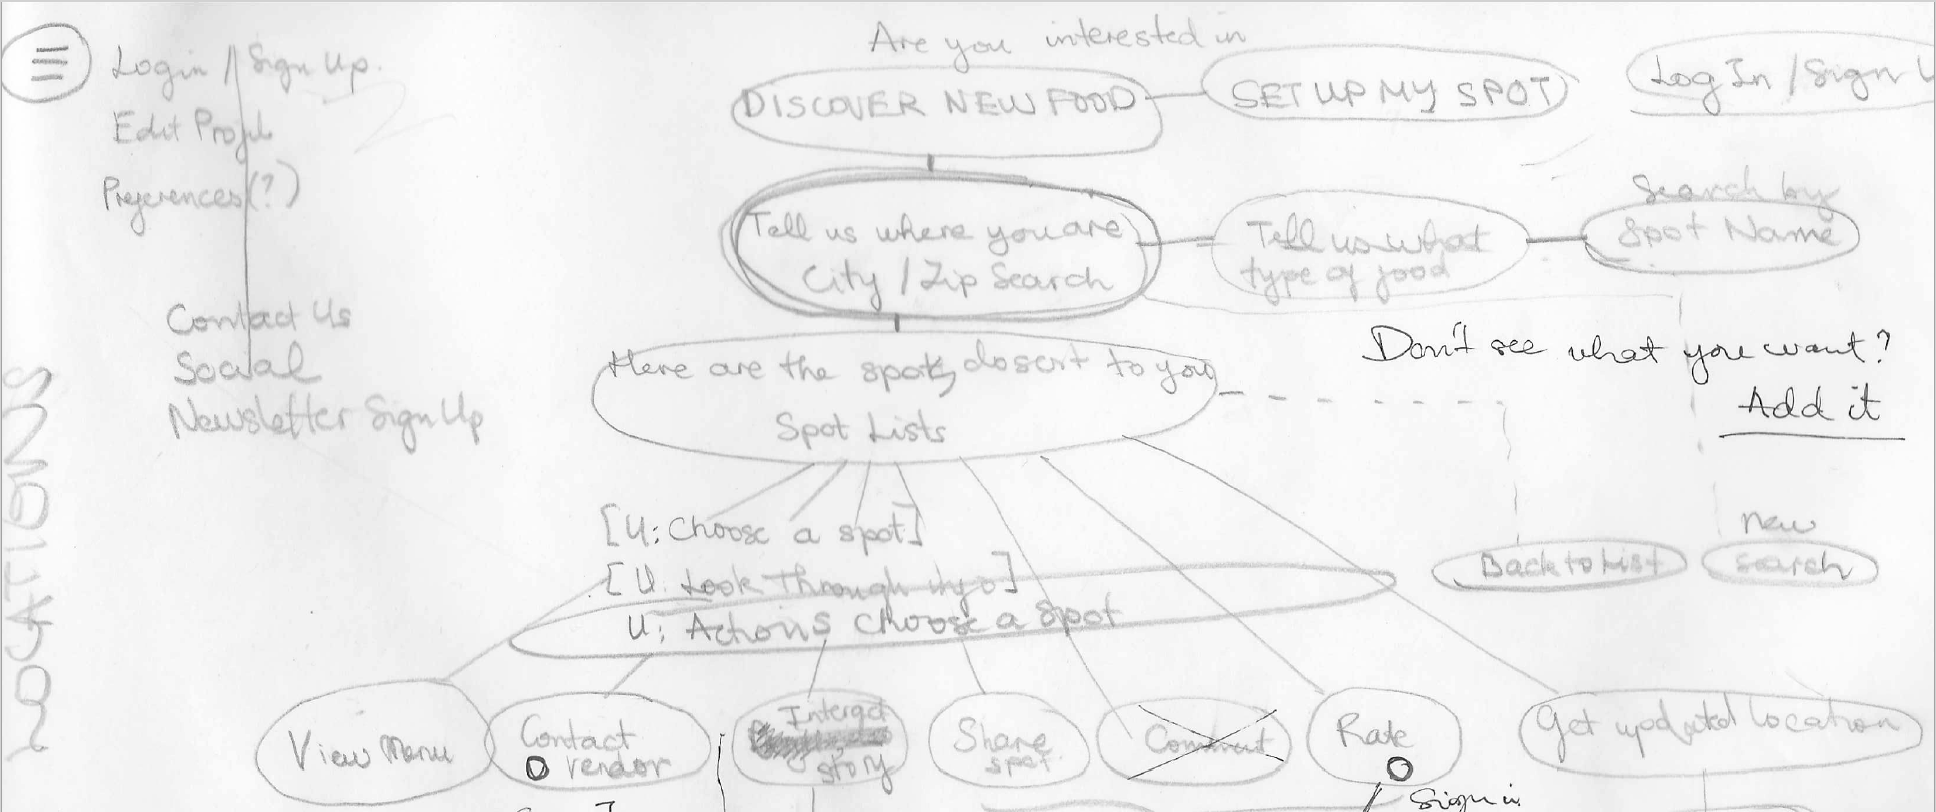 Are you interested in
Login / Sign Up.
DISCOVER NEW FOOD
SET UP MY SPOT
Log In / Sign U
Edit Profil
Preferences(?)
Search by
Spot Name
Tell us where you are
City / Zip Search
Tell us what
type of food
Contact Us
Social
Newsletter Sign Up
Here are the spots closest to you
Spot Lists
Don't see what you want?
Add it
LOCATIONS
[U: Choose a spot]
[U. Look through info]
U: Actions choose a spot
Back to List
new
search
View Menu
Contact
vendor
Interact
story
Share
spot
Comment
Rate
Get updated location
Sign in